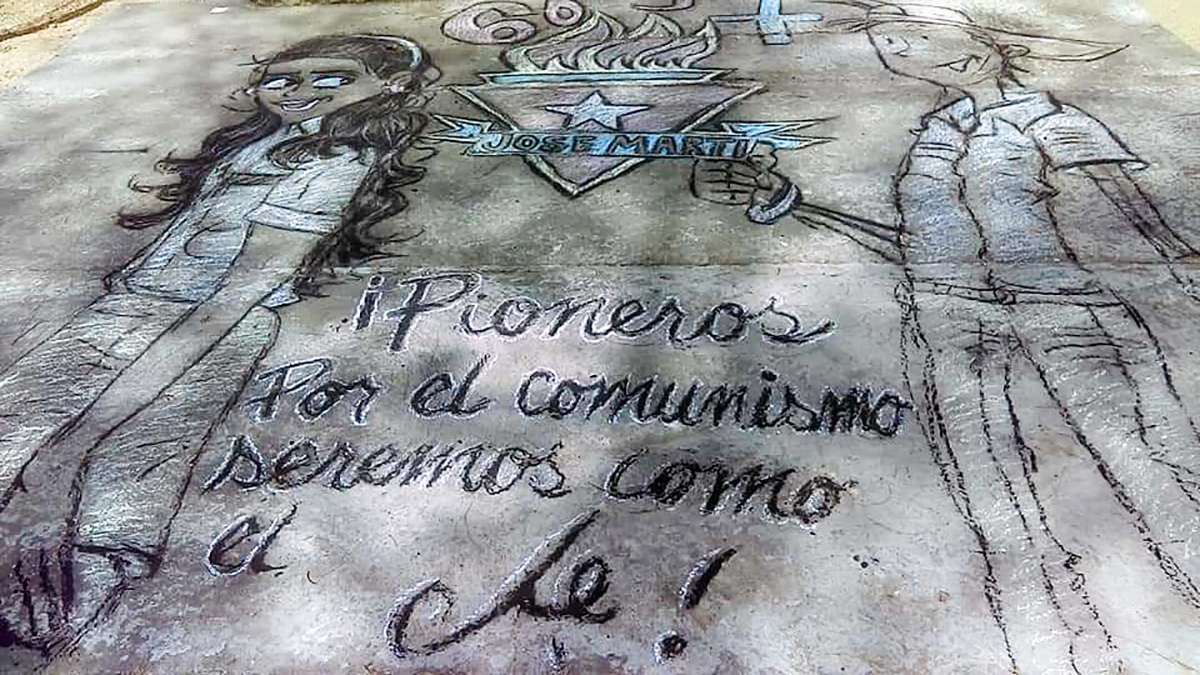 JOSE MARTI
¡Pioneros
Por el comunismo
seremos como
el
Che!